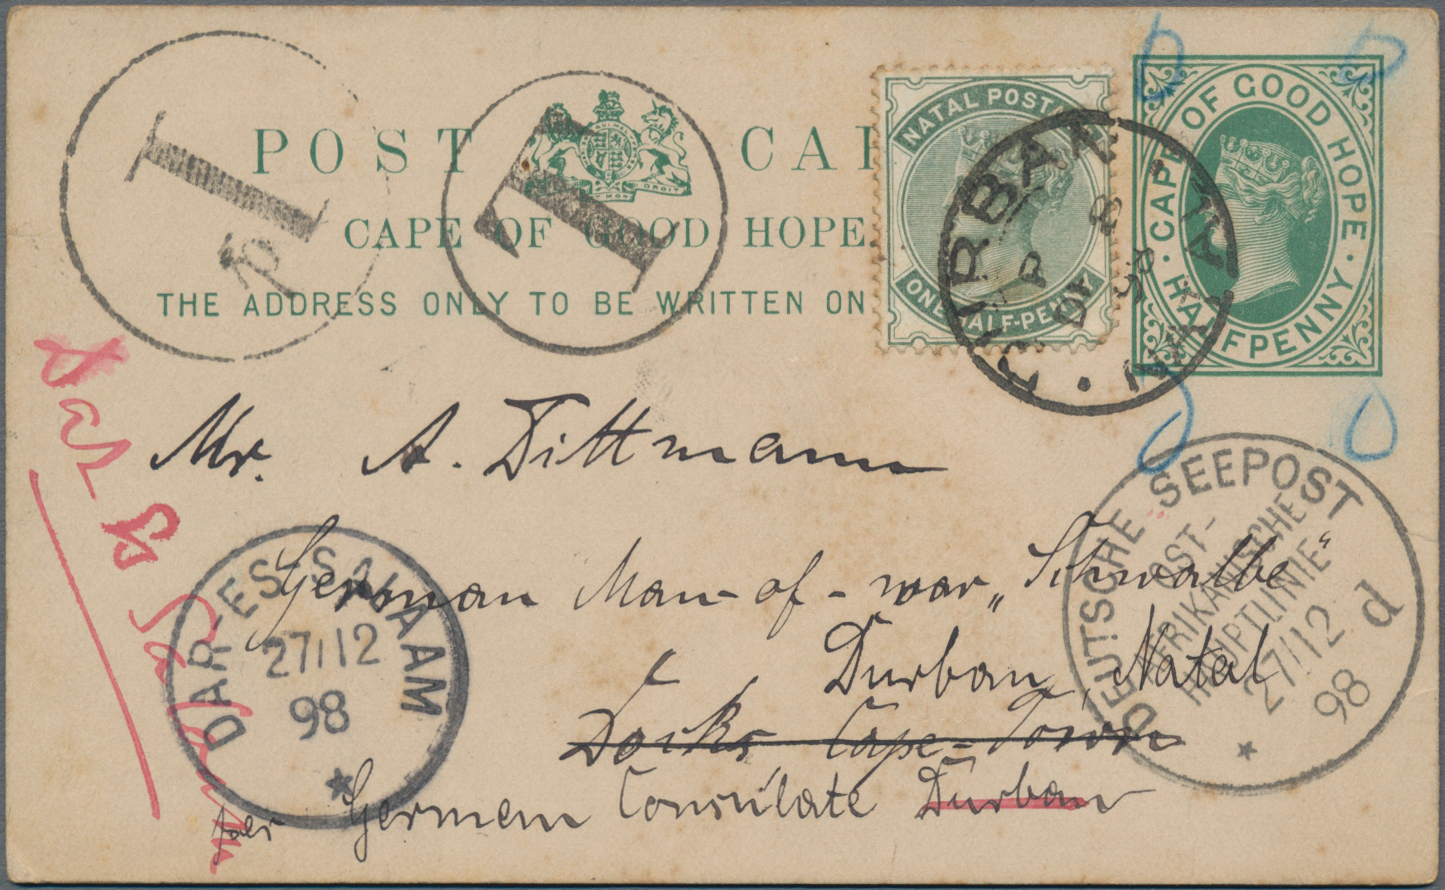 POST CAR
CAPE OF GOOD HOPE
THE ADDRESS ONLY TO BE WRITTEN ON
NATAL POSTA
ONE HALF-PENNY
CAPE OF GOOD HOPE
HALFPENNY
DURBAN
NATAL
DE 8
98
1d
T
Mr. A. Dittmann
German Man-of-war „Schwalbe“
Durban, Natal
Docks Cape-Town
per German Consulate Durban
Dar Es Salaam
DAR-ES-SALAAM
27/12
98
DEUTSCHE SEEPOST
OST-
AFRIKANISCHE
HAUPTLINIE
27/12
98
d